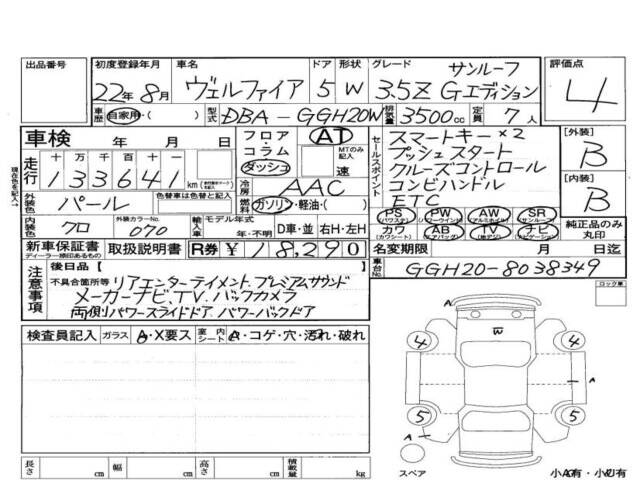 出品番号
初度登録年月 車名 ドア 形状 グレード サンルーフ 評価点
22年 8月 ヴェルファイア 5 W 3.5Z Gエディション 4
車歴 自家用・( ) 型式 DBA-GGH20W 排気量 3500cc 定員 7人
車検 年 月 日 フロア AT セールスポイント スマートキー×2 [外装]
走行 十 万 千 百 十 一 コラム MTのみ記入 プッシュスタート B
133641 km ダッシュ 速 クルーズコントロール
現在色を記入→ 冷房 AAC コンビハンドル [内装]
外装色 パール 色替車は色替と記入 燃料 ガソリン・軽油・( ) ETC B
PS PW AW SR
(パワステ) (パワーウインド) (アルミホイル) (サンルーフ)
内装色 クロ 外装カラーNo. 070 輸入車 モデル年式 年・不明 D車・並 右H・左H カワ AB TV ナビ 純正品のみ丸印
(カワシート) (エアバッグ) (地デジ) (ナビゲーション)
新車保証書 取扱説明書 R券 ¥18,290 名変期限 月 日迄
ディーラー捺印あるもの
後日品 [ ] 車台No. GGH20-8038349
注意事項 不具合箇所等 リアエンターテイメント. プレミアムサウンド ロック車
メーカーナビ.TV.バックカメラ
両側パワースライドドア. パワーバックドア
検査員記入 ガラス A・X要ス 室内シート A・コゲ・穴・汚れ・破れ
A
W
4 4
A
5 5
A
長さ cm 幅 cm 高さ cm 積載量 kg スペア 小A有・小U有